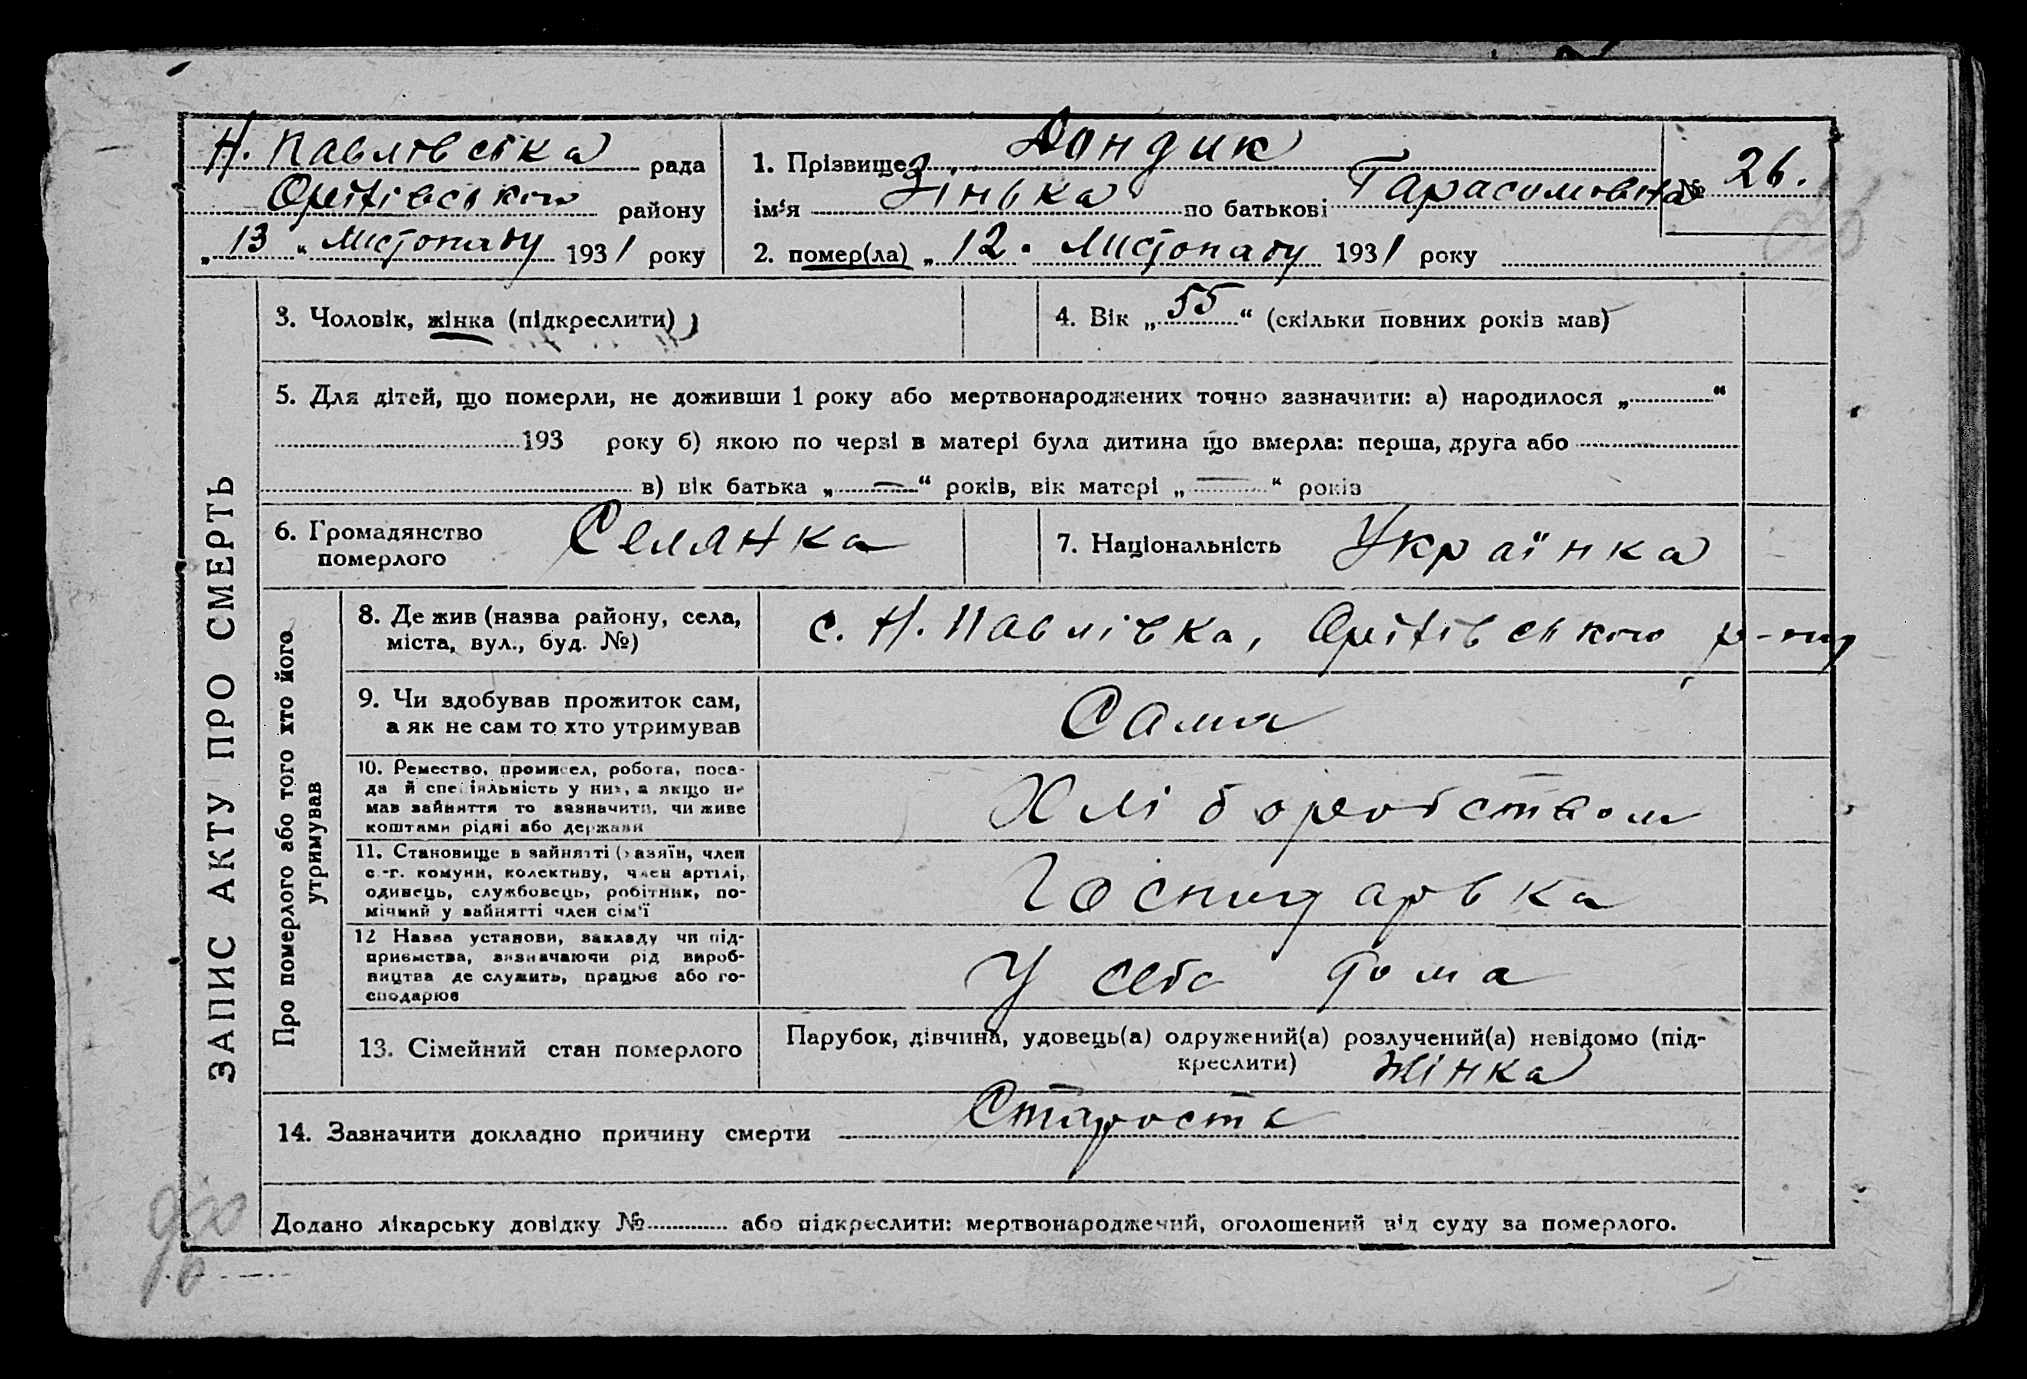 Н. Павлівська рада
Оратівського району
„13“ Листопаду 1931 року
1. Прізвище Дондик
ім'я Зінька по батькові Тарасимовна
2. помер(ла) „12. Листопаду 1931 року
№ 26.
26
ЗАПИС АКТУ ПРО СМЕРТЬ
3. Чоловік, жінка (підкреслити)
4. Вік „55“ (скільки повних років мав)
5. Для дітей, що померли, не доживши 1 року або мертвонароджених точно зазначити: а) народилося „ “
193 року б) якою по черзі в матері була дитина що вмерла: перша, друга або
в) вік батька „—“ років, вік матері „—“ років
6. Громадянство
померлого
Селянка
7. Національність Українка
Про померлого або того хто його
утримував
8. Де жив (назва району, села,
міста, вул., буд. №)
с. Н. Павлівка, Оратівського р-ну
9. Чи здобував прожиток сам,
а як не сам то хто утримував
Сама
10. Ремество, промисел, робота, поса-
да й спеціяльність у них, а якщо не
мав зайняття то зазначити, чи живе
коштами рідні або держави
Хліборобством
11. Становище в зайнятті (хазяїн, член
с.-г. комуни, колективу, член артілі,
одинець, службовець, робітник, по-
мічний у зайнятті член сім'ї
Господарька
12 Назва установи, закладу чи під-
приємства, визначаючи рід вироб-
ництва де служить, працює або го-
сподарює
У себе дома
13. Сімейний стан померлого
Парубок, дівчина, удовець(а) одружений(а) розлучений(а) невідомо (під-
креслити) Жінка
14. Зазначити докладно причину смерти Старость
Додано лікарську довідку № або підкреслити: мертвонароджений, оголошений від суду за померлого.